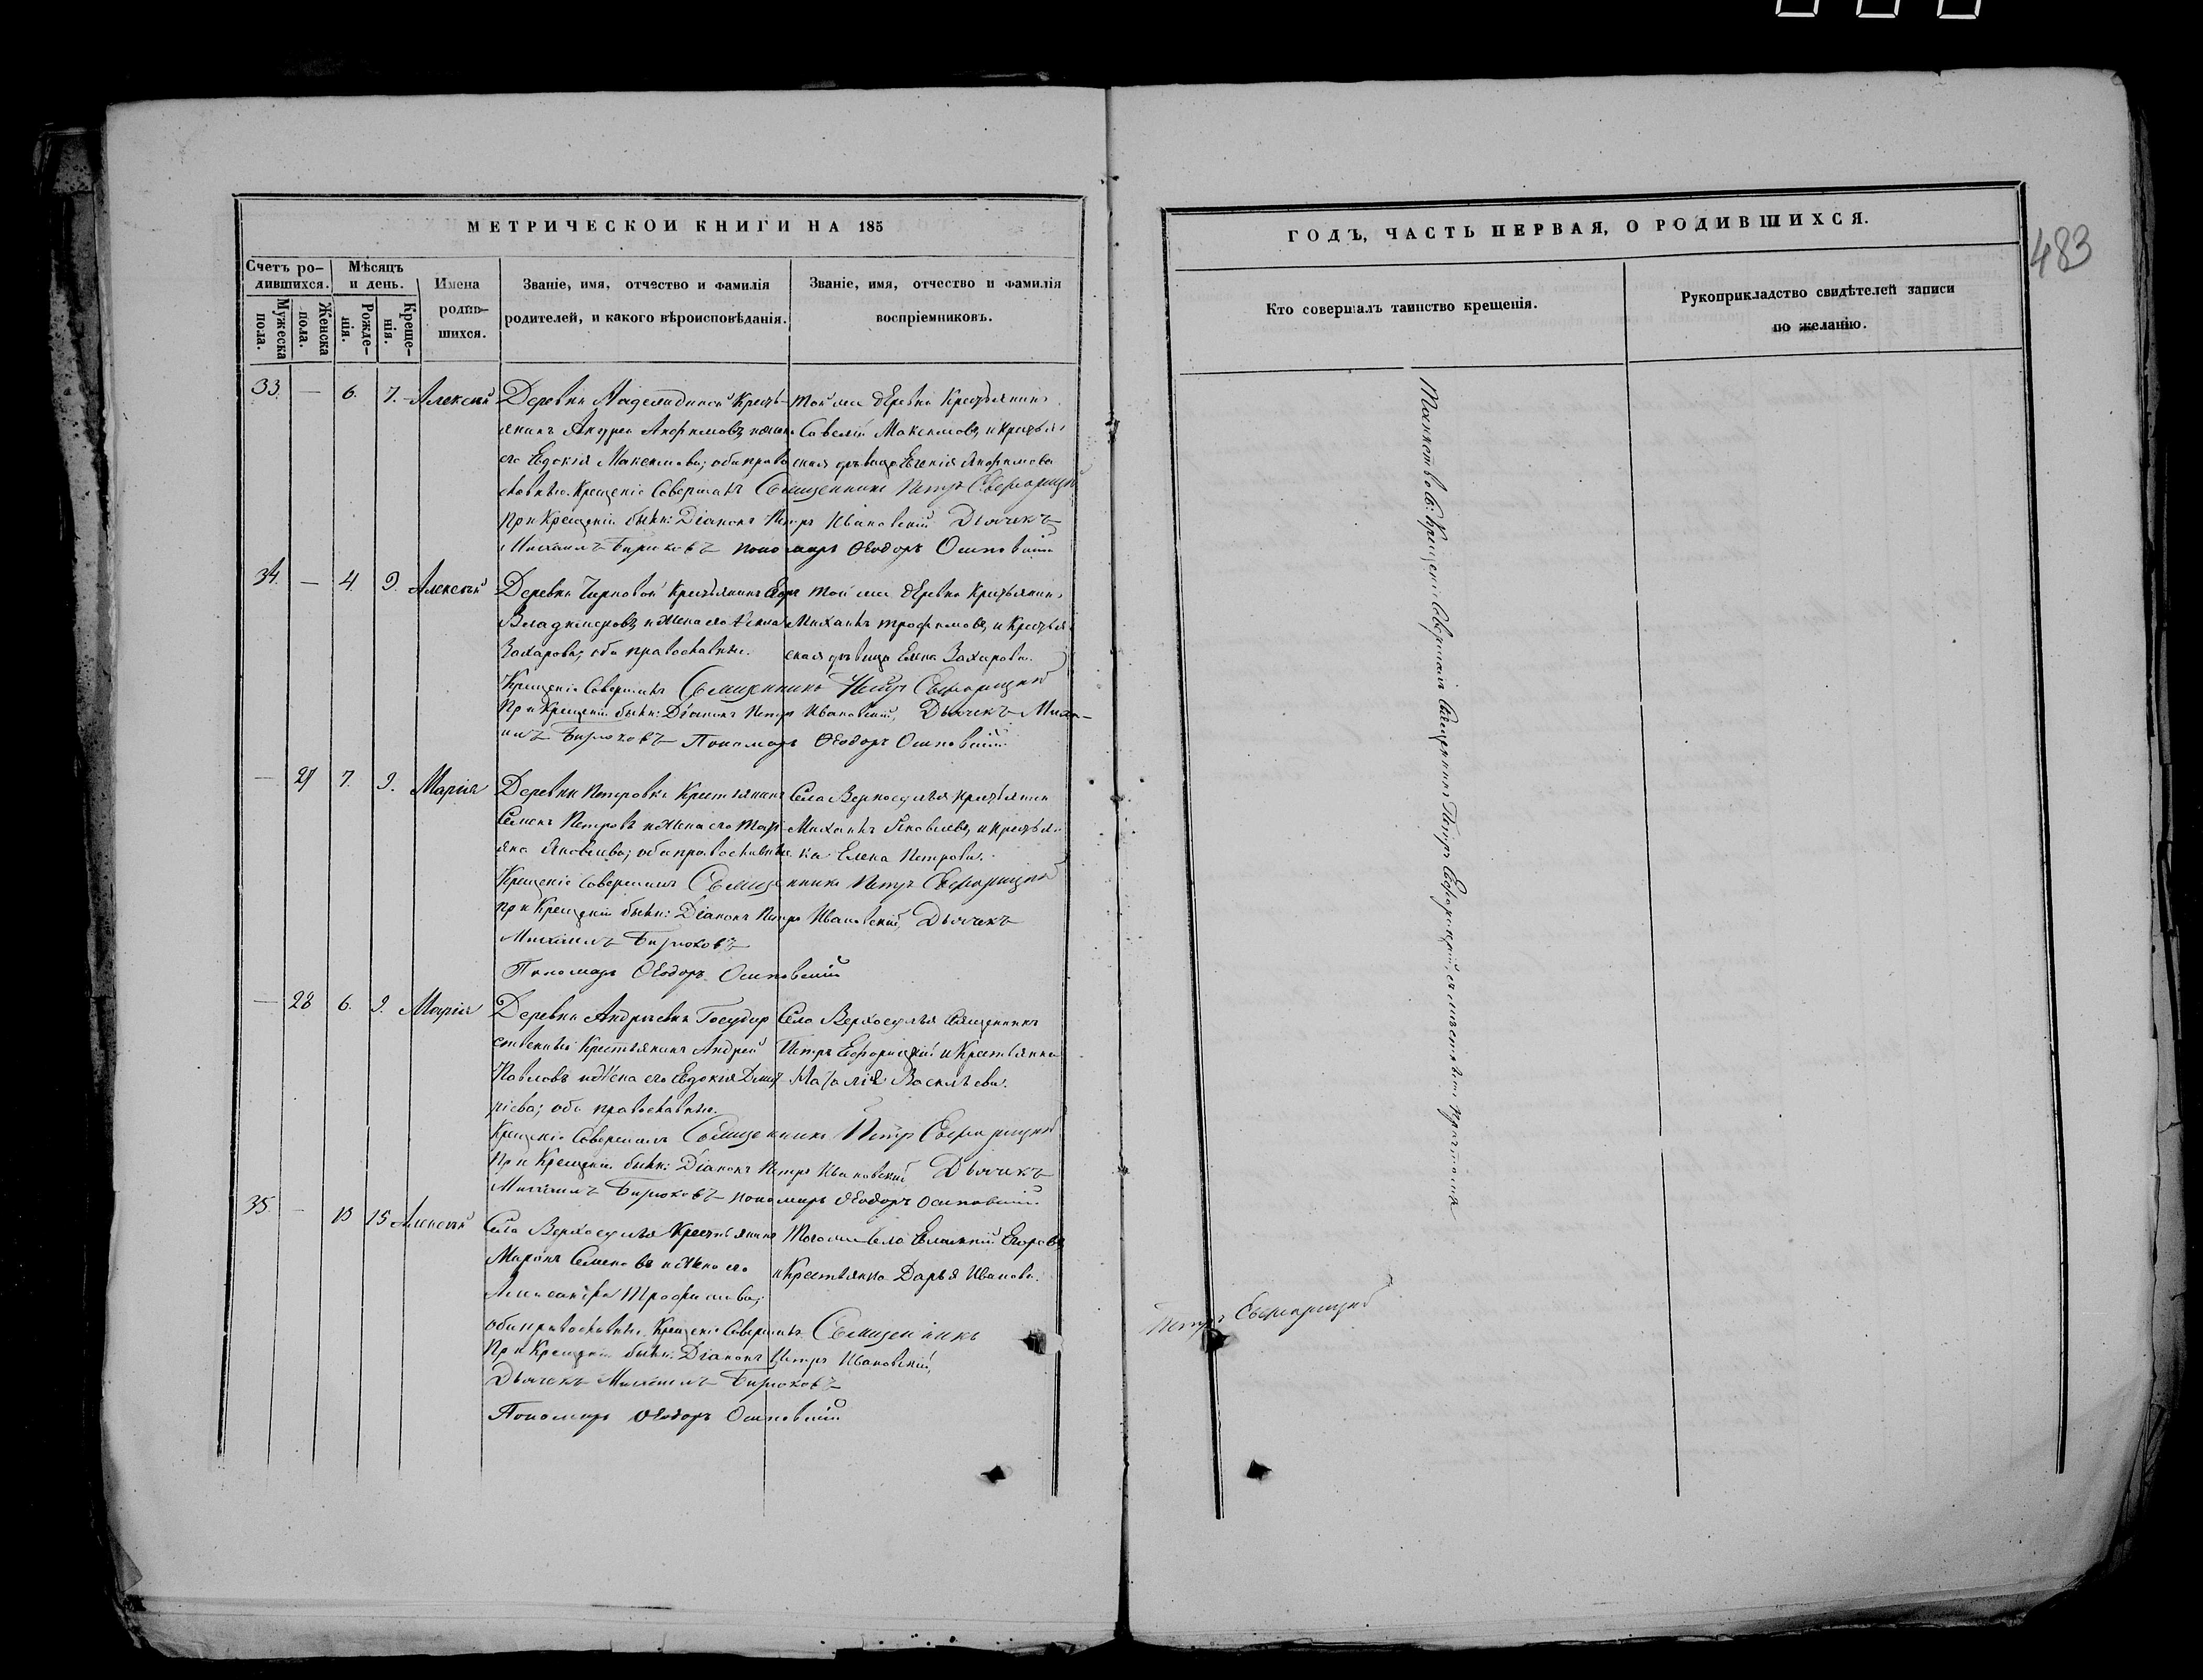 МЕТРИЧЕСКОЙ КНИГИ НА 185
Счетъ ро-
дившихся.
Мужеска
пола.
Женска
пола.
Мѣсяцъ
и день.
Рожде-
нія.
Креще-
нія.
Имена
родив-
шихся.
Званіе, имя, отчество и фамилія
родителей, и какого вѣроисповѣданія.
Званіе, имя, отчество и фамилія
воспріемниковъ.
33. — 6. 7. Алексѣй
Деревни Кресть-
янинъ Андрей Анфимовъ и жена
его Евдокія Максимова; оба право
славные. Крещеніе Совершалъ Священникъ Петръ
Той же деревни Крестьянинъ
Савелій Максимовъ, и Крестьян
ская дѣвица Евгенія Анфимова
При Крещеніи были: Діаконъ Петръ Ивановскій Дьячекъ
Михаилъ Бирюковъ пономарь Ѳеодоръ Осиповскій
34. — 4. 9. Алексѣй
Деревни Крестьянинъ Егоръ
Владимеровъ и жена его
Захарова; оба православные.
Той же деревни Крестьянинъ
Михаилъ Трофимовъ, и Крестьян
ская дѣвица Елена Захарова.
Крещеніе Совершалъ Священникъ Петръ
При Крещеніи были: Діаконъ Петръ Ивановскій, Дьячекъ Миха-
илъ Бирюковъ Пономарь Ѳеодоръ Осиповскій
— 27 7. 9. Марія
Деревни Петровки Крестьянинъ
Семенъ Петровъ и жена его
Яковлева; оба православные.
Села Верхосулья Крестьянин
Михаилъ Яковлевъ, и Крестьян
ка Елена Петрова.
Крещеніе Совершалъ Священникъ Петръ
При Крещеніи были: Діаконъ Петръ Ивановскій, Дьячекъ
Михаилъ Бирюковъ
Пономарь Ѳеодоръ Осиповскій
— 28 6. 9. Марія
Деревни Андреевки Государ
ственный Крестьянинъ Андрей
Павловъ и жена его Евдокія Димит
ріева; оба православные.
Села Верхосулья Священникъ
Петръ и Крестьянка
Наталія Васильева.
Крещеніе Совершалъ Священникъ Петръ
При Крещеніи были: Діаконъ Петръ Ивановскій Дьячекъ
Михаилъ Бирюковъ пономарь Ѳеодоръ Осиповскій
35. — 13 15 Алексѣй
Села Верхосулья Крестьянинъ
Миронъ Семеновъ и жена его
Александра Трофимова;
Того же Села Евлампій Егоровъ
и Крестьянка Дарья Иванова.
оба православные. Крещеніе Совершалъ Священникъ
При Крещеніи были: Діаконъ Петръ Ивановскій,
Дьячекъ Михаилъ Бирюковъ
Пономарь Ѳеодоръ Осиповскій
ГОДЪ, ЧАСТЬ ПЕРВАЯ, О РОДИВШИХСЯ.
483
Кто совершалъ таинство крещенія.
Рукоприкладство свидѣтелей записи
по желанію.
Таинство Св: Крещенія Совершалъ Священникъ Петръ съ мѣстнымъ причтомъ
Петръ